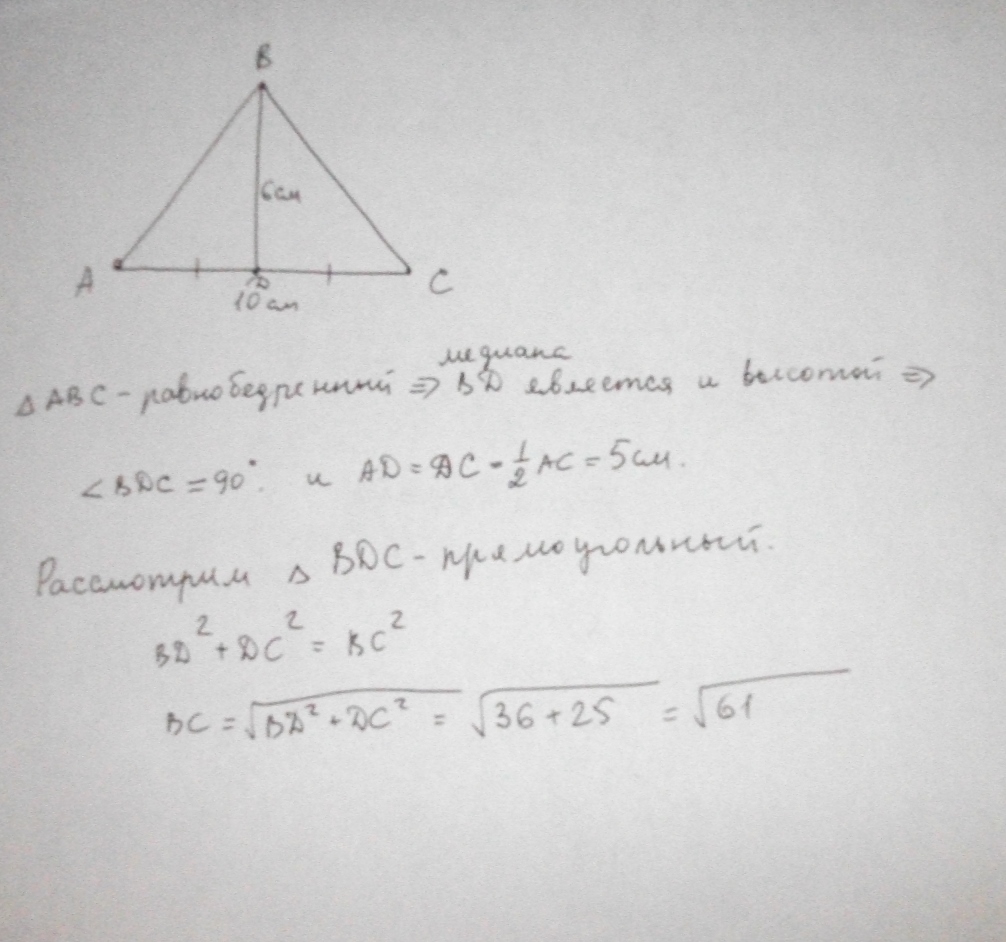 B
6см
A
D
C
10 см
медиана
△ ABC - равнобедренный ⇒ BD является и высотой ⇒
∠BDC = 90°. и AD = DC = 1/2 AC = 5см.
Рассмотрим △ BDC - прямоугольный.
BD² + DC² = BC²
BC = √BD² + DC² = √36 + 25 = √61